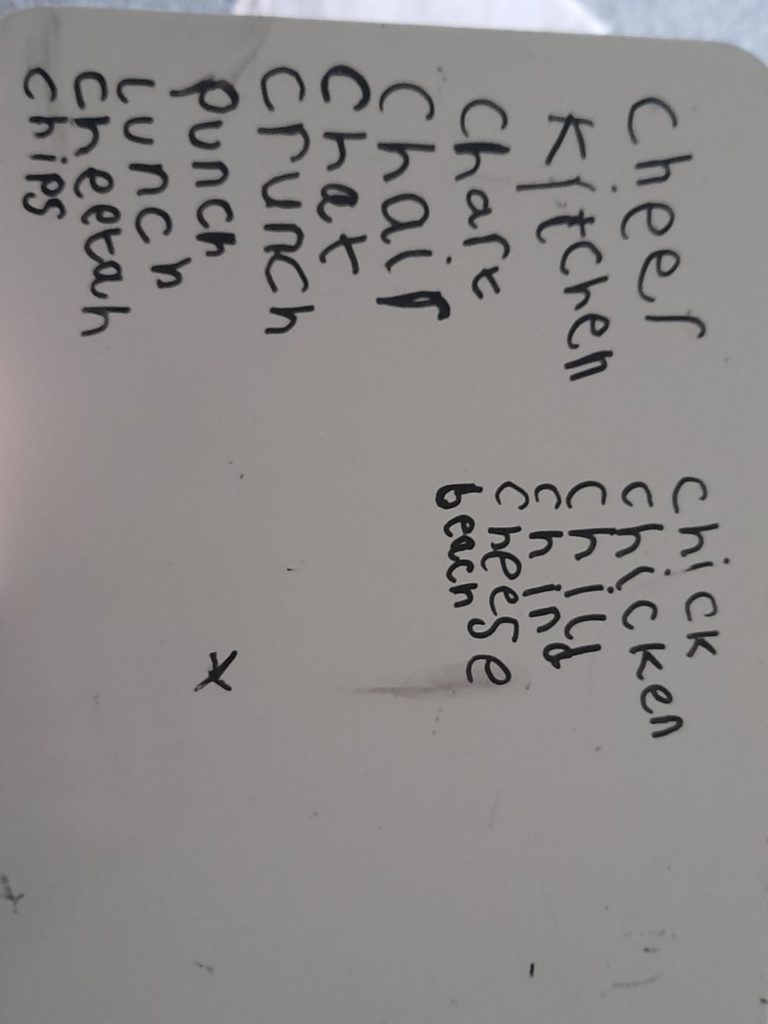 Cheer
Kitchen
Chart
Chair
Chat
Crunch
Punch
Lunch
Cheetah
Chips
Chick
Chicken
Child
Chin
Cheese
beach
x